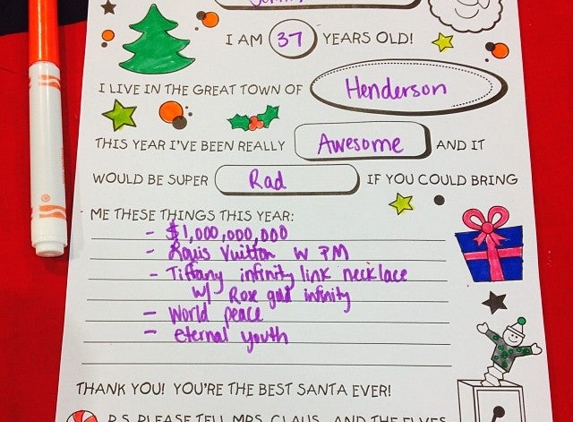 I AM 37 YEARS OLD!
I LIVE IN THE GREAT TOWN OF Henderson
THIS YEAR I'VE BEEN REALLY Awesome AND IT
WOULD BE SUPER Rad IF YOU COULD BRING
ME THESE THINGS THIS YEAR:
- $1,000,000,000
- Louis Vuitton W PM
- Tiffany infinity link necklace
w/ Rose gold infinity
- World peace
- eternal youth
THANK YOU! YOU'RE THE BEST SANTA EVER!
P.S. PLEASE TELL MRS. CLAUS, AND THE ELVES